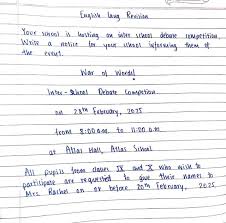 English Lang Revision
Your school is hosting an inter school debate competition.
Write a notice for your school informing them of
the event.
War of Words!
Inter-School Debate Competition
on 28th February, 2025
from 8:00 a.m. to 11:00 a.m
at Atlas Hall, Atlas School
All pupils from classes IX and X who wish to
participate are requested to give their names to
Mrs. Rachel on or before 20th February, 2025.